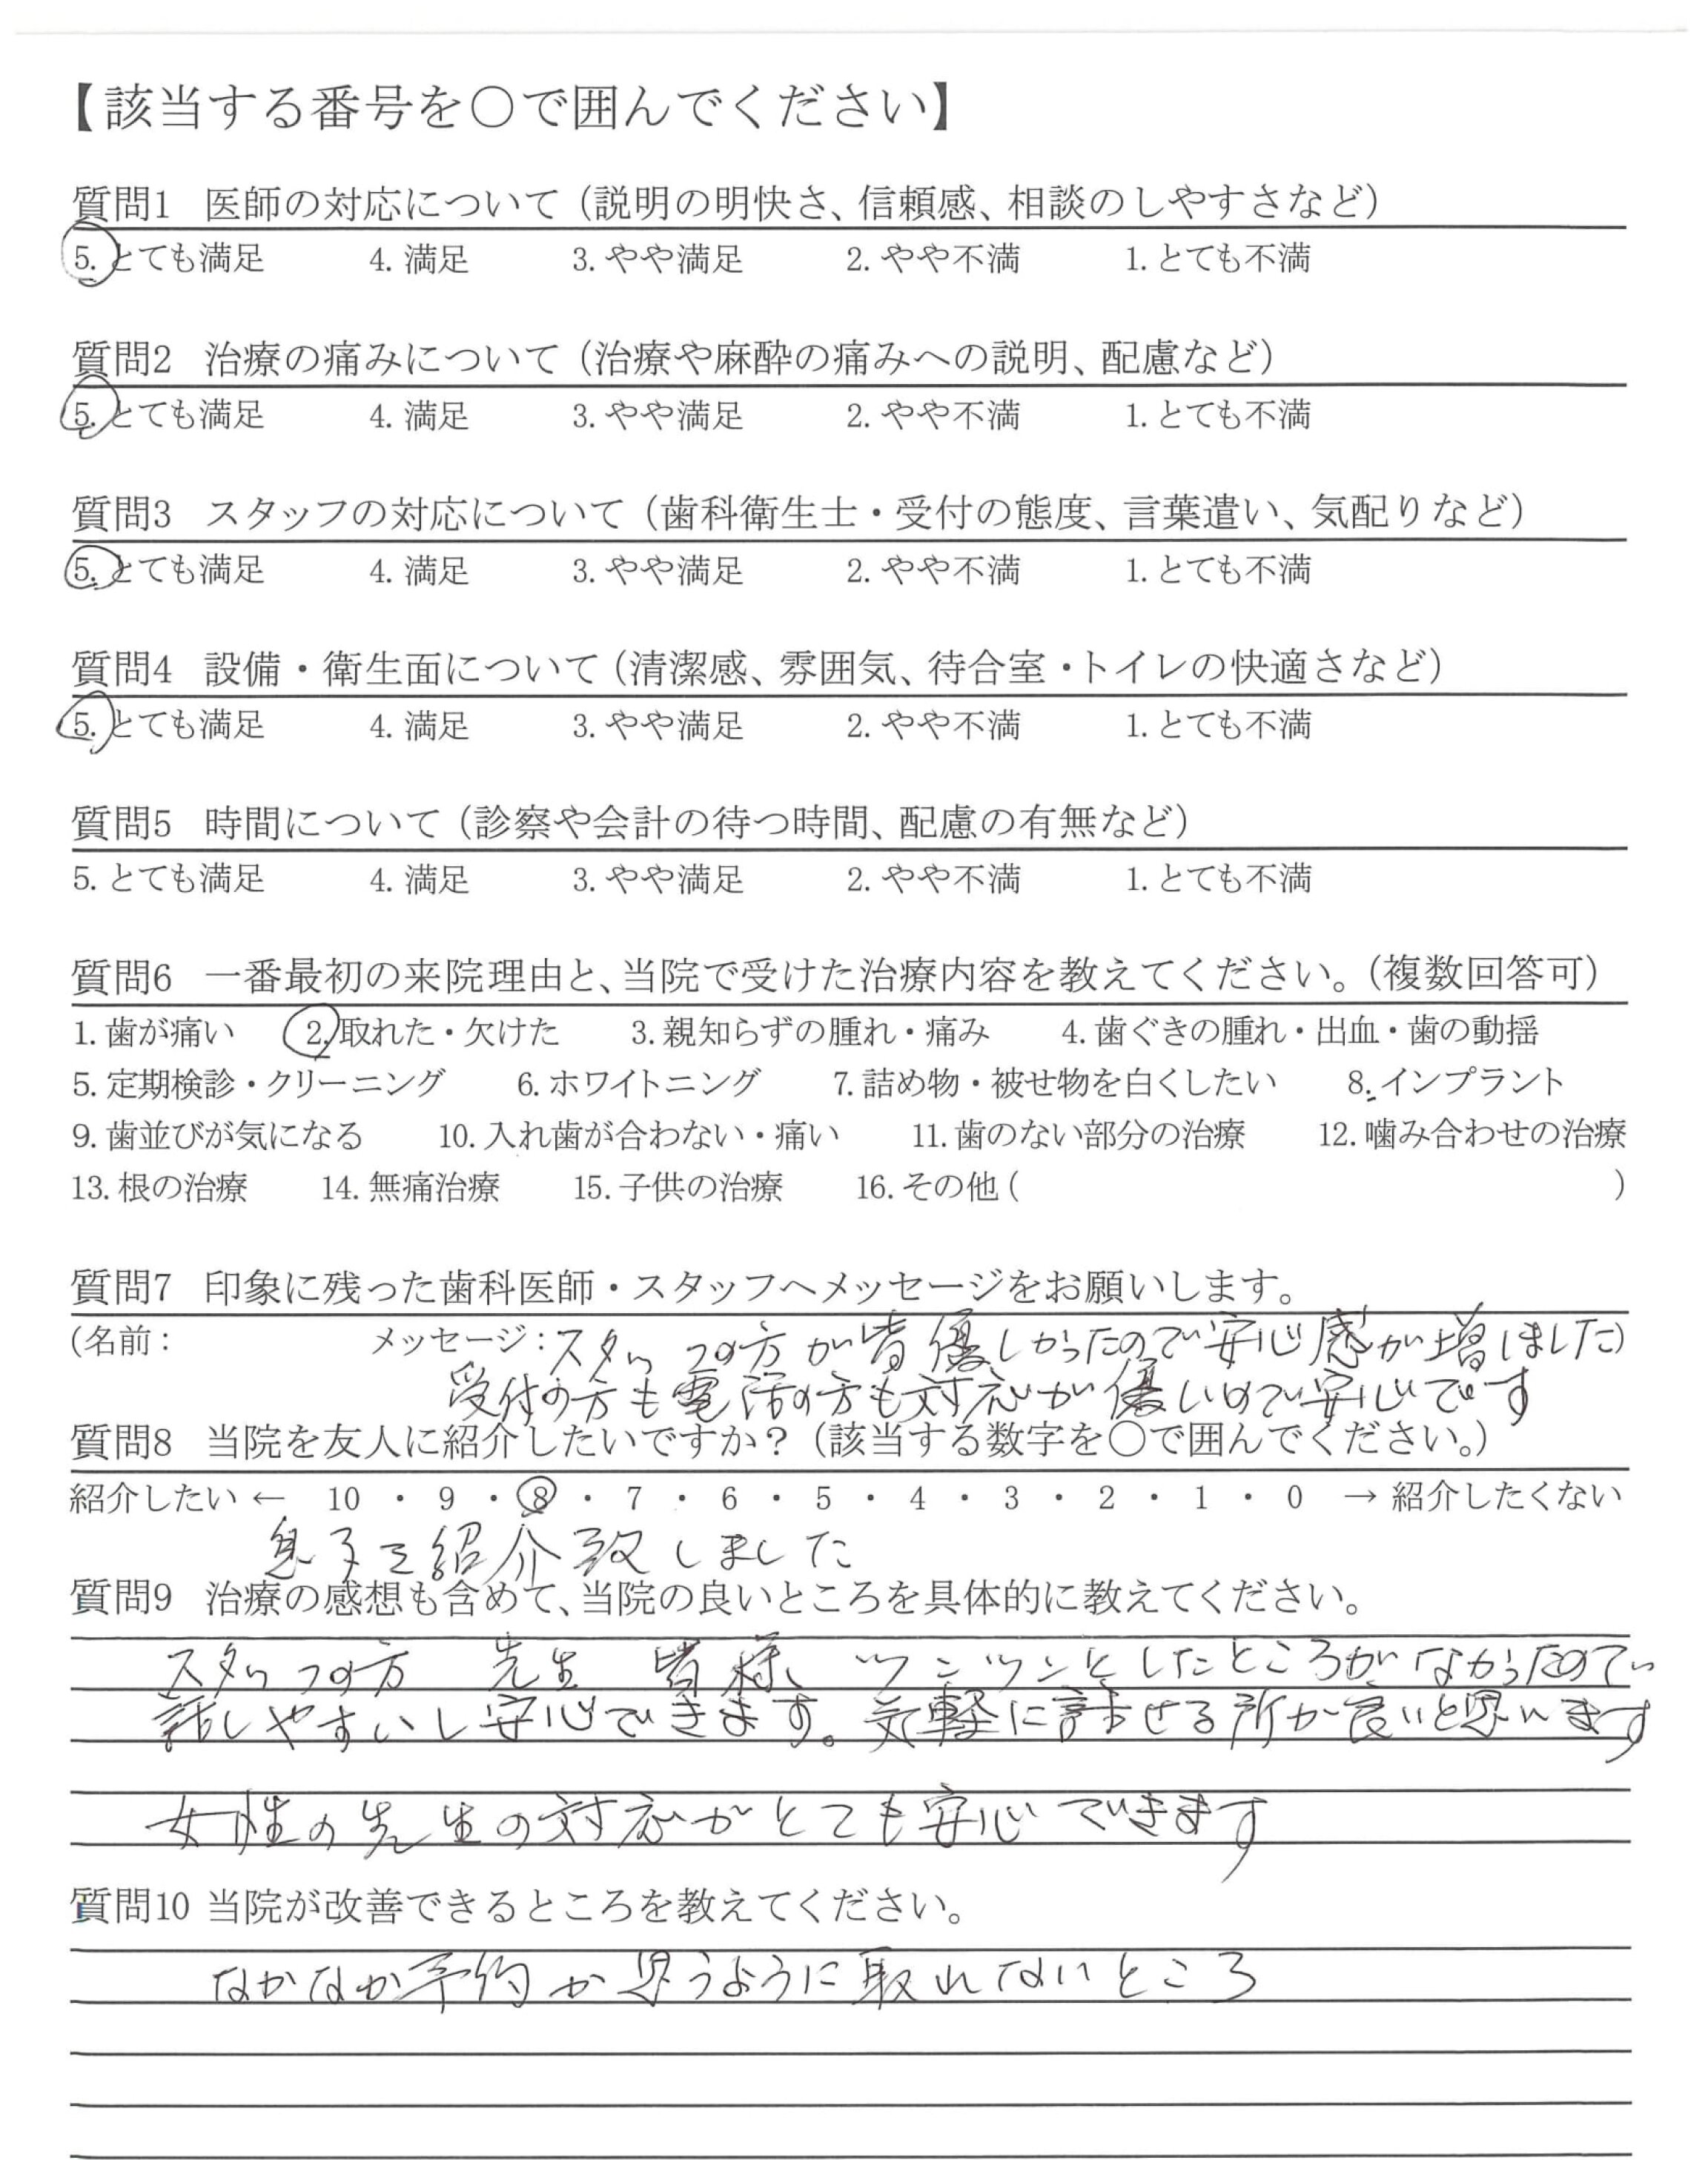 【該当する番号を○で囲んでください】
質問1 医師の対応について（説明の明快さ、信頼感、相談のしやすさなど）
5. とても満足 4. 満足 3. やや満足 2. やや不満 1. とても不満
質問2 治療の痛みについて（治療や麻酔の痛みへの説明、配慮など）
5. とても満足 4. 満足 3. やや満足 2. やや不満 1. とても不満
質問3 スタッフの対応について（歯科衛生士・受付の態度、言葉遣い、気配りなど）
5. とても満足 4. 満足 3. やや満足 2. やや不満 1. とても不満
質問4 設備・衛生面について（清潔感、雰囲気、待合室・トイレの快適さなど）
5. とても満足 4. 満足 3. やや満足 2. やや不満 1. とても不満
質問5 時間について（診察や会計の待つ時間、配慮の有無など）
5. とても満足 4. 満足 3. やや満足 2. やや不満 1. とても不満
質問6 一番最初の来院理由と、当院で受けた治療内容を教えてください。（複数回答可）
1. 歯が痛い 2. 取れた・欠けた 3. 親知らずの腫れ・痛み 4. 歯ぐきの腫れ・出血・歯の動揺
5. 定期検診・クリーニング 6. ホワイトニング 7. 詰め物・被せ物を白くしたい 8. インプラント
9. 歯並びが気になる 10. 入れ歯が合わない・痛い 11. 歯のない部分の治療 12. 噛み合わせの治療
13. 根の治療 14. 無痛治療 15. 子供の治療 16. その他（ ）
質問7 印象に残った歯科医師・スタッフへメッセージをお願いします。
（名前： メッセージ：スタッフの方が皆優しかったので安心感が増しました）
受付の方も電話の方も対応が優しいので安心です
質問8 当院を友人に紹介したいですか？（該当する数字を○で囲んでください。）
紹介したい ← 10 ・ 9 ・ 8 ・ 7 ・ 6 ・ 5 ・ 4 ・ 3 ・ 2 ・ 1 ・ 0 → 紹介したくない
息子を紹介致しました
質問9 治療の感想も含めて、当院の良いところを具体的に教えてください。
スタッフの方 先生 皆様、ツンツンとしたところがなかったので
話しやすいし安心できます。気軽に話せる所が良いと思います
女性の先生の対応がとても安心できます
質問10 当院が改善できるところを教えてください。
なかなか予約が思うように取れないところ